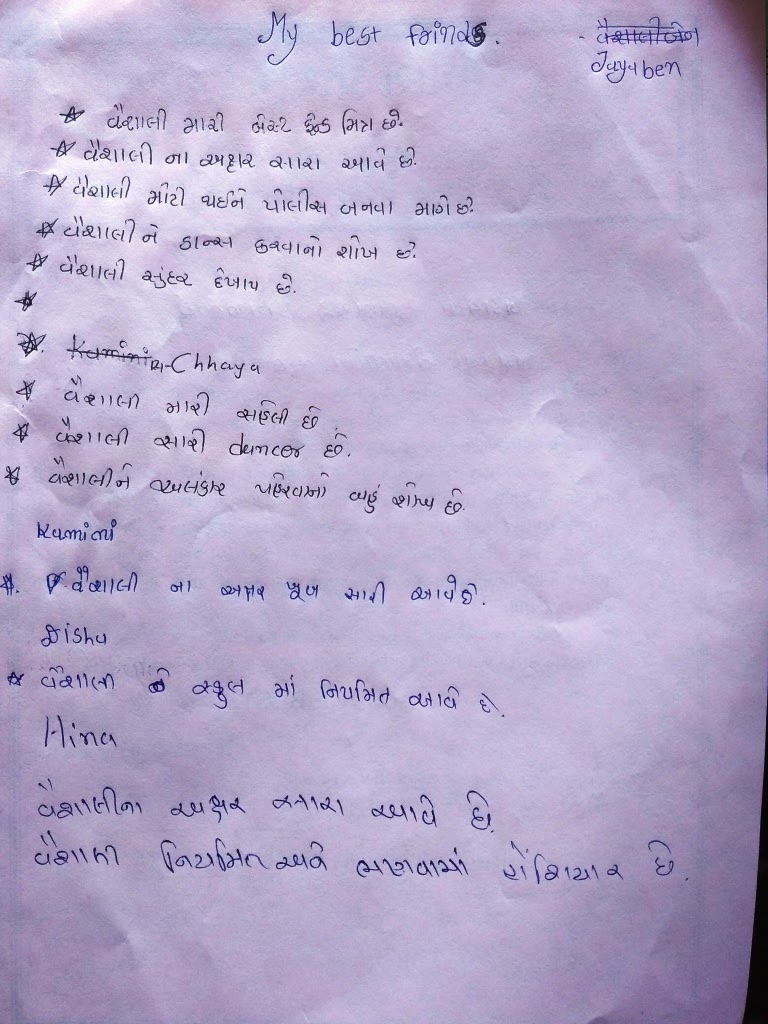 My best frinds.
વૈશાલીબેન
Jayaben
વૈશાલી મારી બેસ્ટ ફ્રેન્ડ મિત્ર છે.
વૈશાલી ના અક્ષર સારા આવે છે.
વૈશાલી મોટી થઈને પોલીસ બનવા માગે છે.
વૈશાલી ને ડાન્સ કરવાનો શોખ છે.
વૈશાલી સુંદર દેખાય છે.
Kamini Chhaya
વૈશાલી મારી સહેલી છે.
વૈશાલી સારી dancer છે.
વૈશાલીને અલંકાર પહેરવાનો બહું શોખ છે.
Kamini
વૈશાલી ના અક્ષર ખૂબ સારી આવે છે.
Disha
વૈશાલી સ્કુલ માં નિયમિત આવે છે.
Hina
વૈશાલીના અક્ષર સારા આવે છે.
વૈશાલી નિયમિત અને ભણવામાં હોંશિયાર છે.